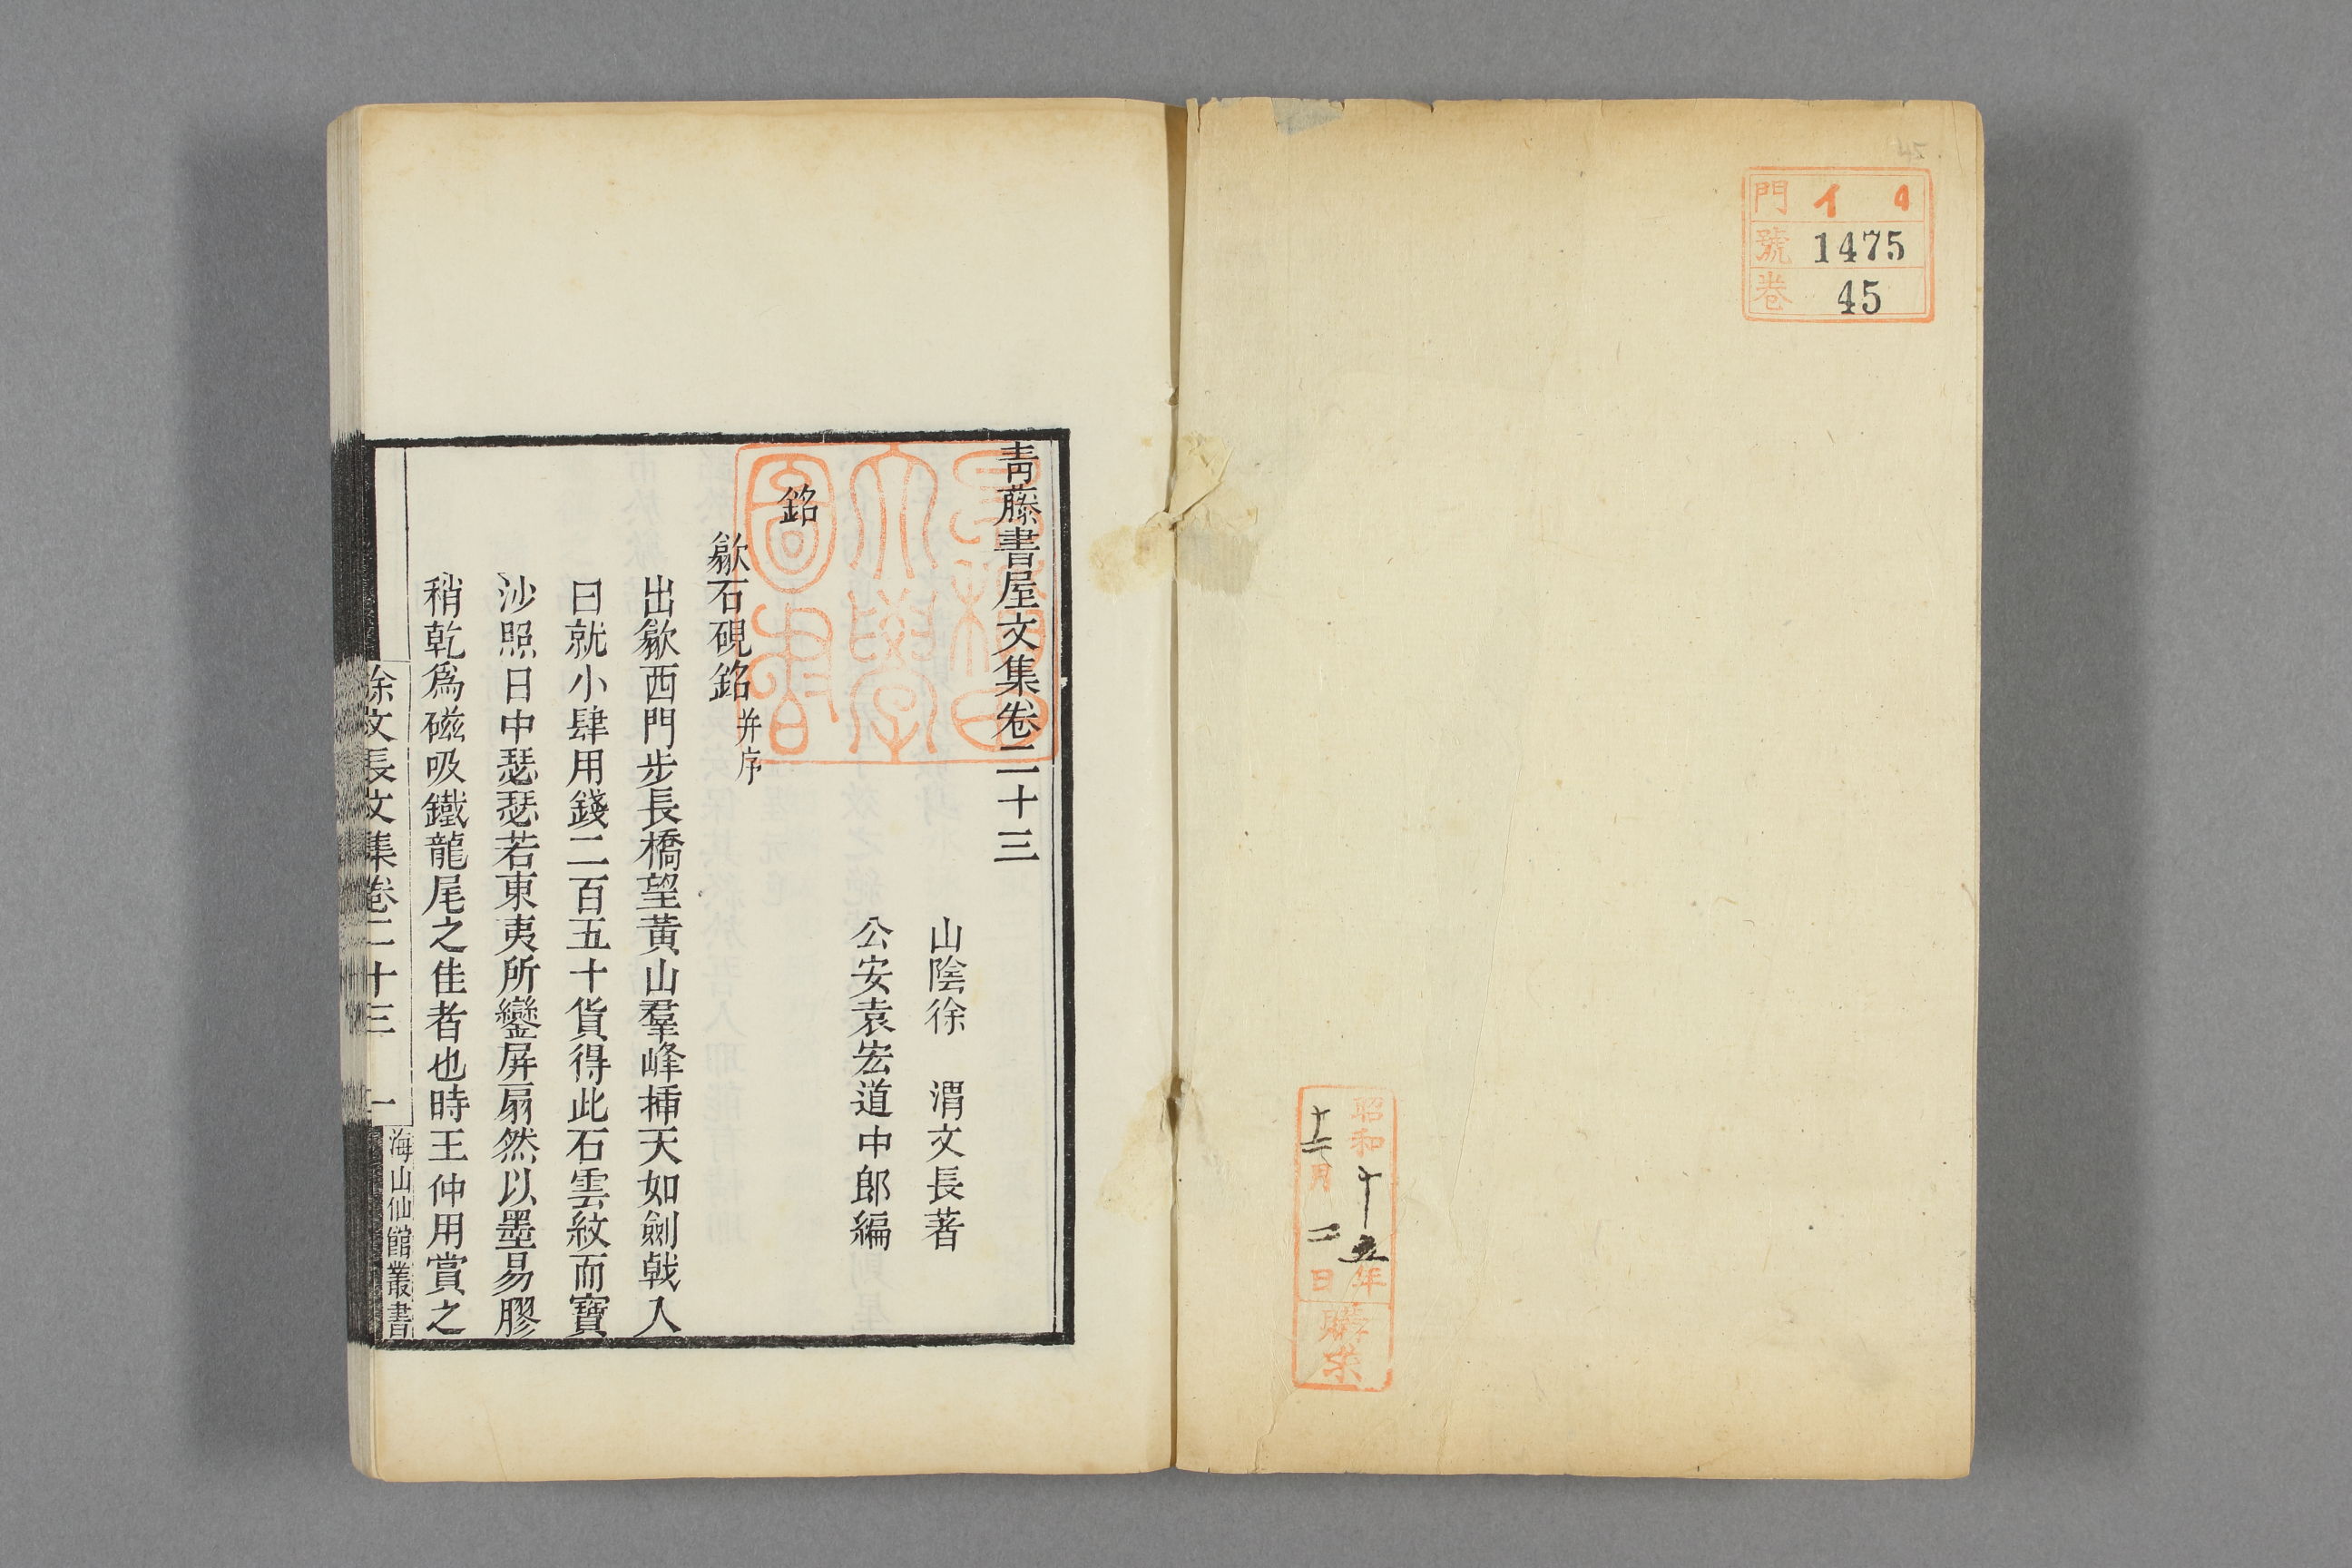 門 イ 4
號 1475
卷 45
昭和十五年
十二月二日
購求
青藤書屋文集卷二十三
山陰徐 渭文長著
公安袁宏道中郎編
銘
歙石硯銘并序
出歙西門步長橋望黃山羣峰插天如劍戟入
曰就小肆用錢二百五十貨得此石雲紋而寶
沙照日中瑟瑟若東夷所鑾屏扇然以墨易膠
稍乾爲磁吸鐵龍尾之佳者也時王仲用賞之
徐文長文集卷二十三 一
海山仙館叢書
早稻田
大學
圖書